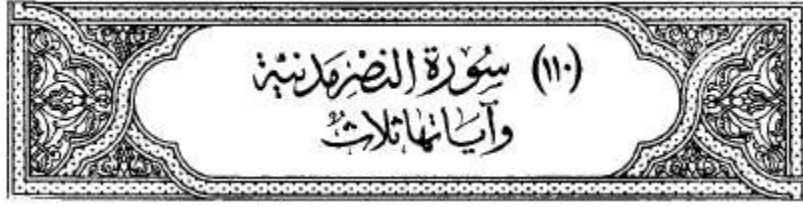 (١١٠) سُورَة النَصْر مَدَنيَّة
وَآيَاتهَا ثلَاثٌ